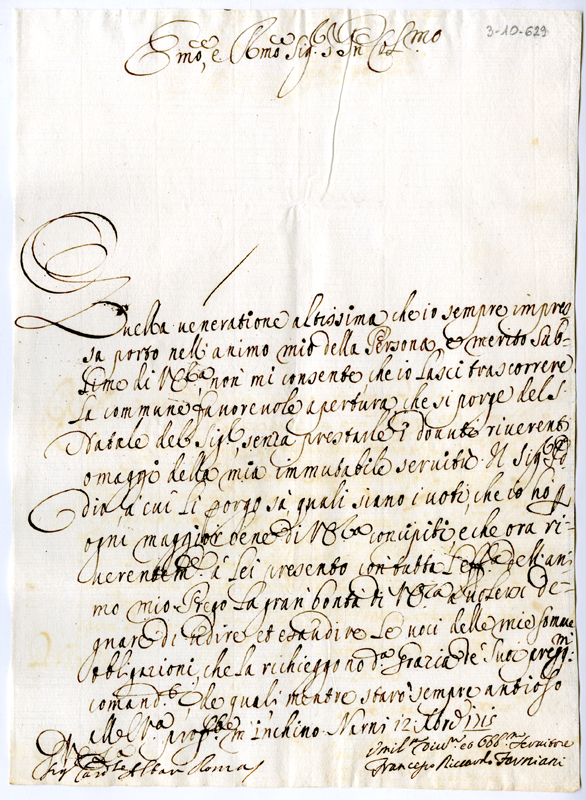 3-10-629
Em.o e R.mo Sig.r
Quella veneratione altissima che io sempre impres
sa porto nell'animo mio della Persona, e merito sub-
lime di V. Em.a, non mi consente che io lasci trascorrere
la commune favorevole apertura, che si porge del S.
Natale del Sig.re, senza prestarle i dovuti riverenti
omaggi della mia immutabile servitù. Il Sig.
Dio, à cui li porgo sà, quali siano i voti, che io hò p
ogni maggior bene di V. Em.a concipiti, e che ora ri-
verentem.e à Lei presento con tutta l' dell'ani
mo mio. Prego la gran bontà di V. Em.a a volersi de-
gnare di udire et esaudire le voci delle mie somme
obligazioni, che la richieggono d. grazia de' suoi preg.mi
comand.ti, de quali mentre starò sempre antioso
all' m'inchino. Narni 12 Xbre 1715
Sig. Card.le Roma
Umil.o Dev.mo et Obb.mo Servitore
Francesco Riccardo Ferniani